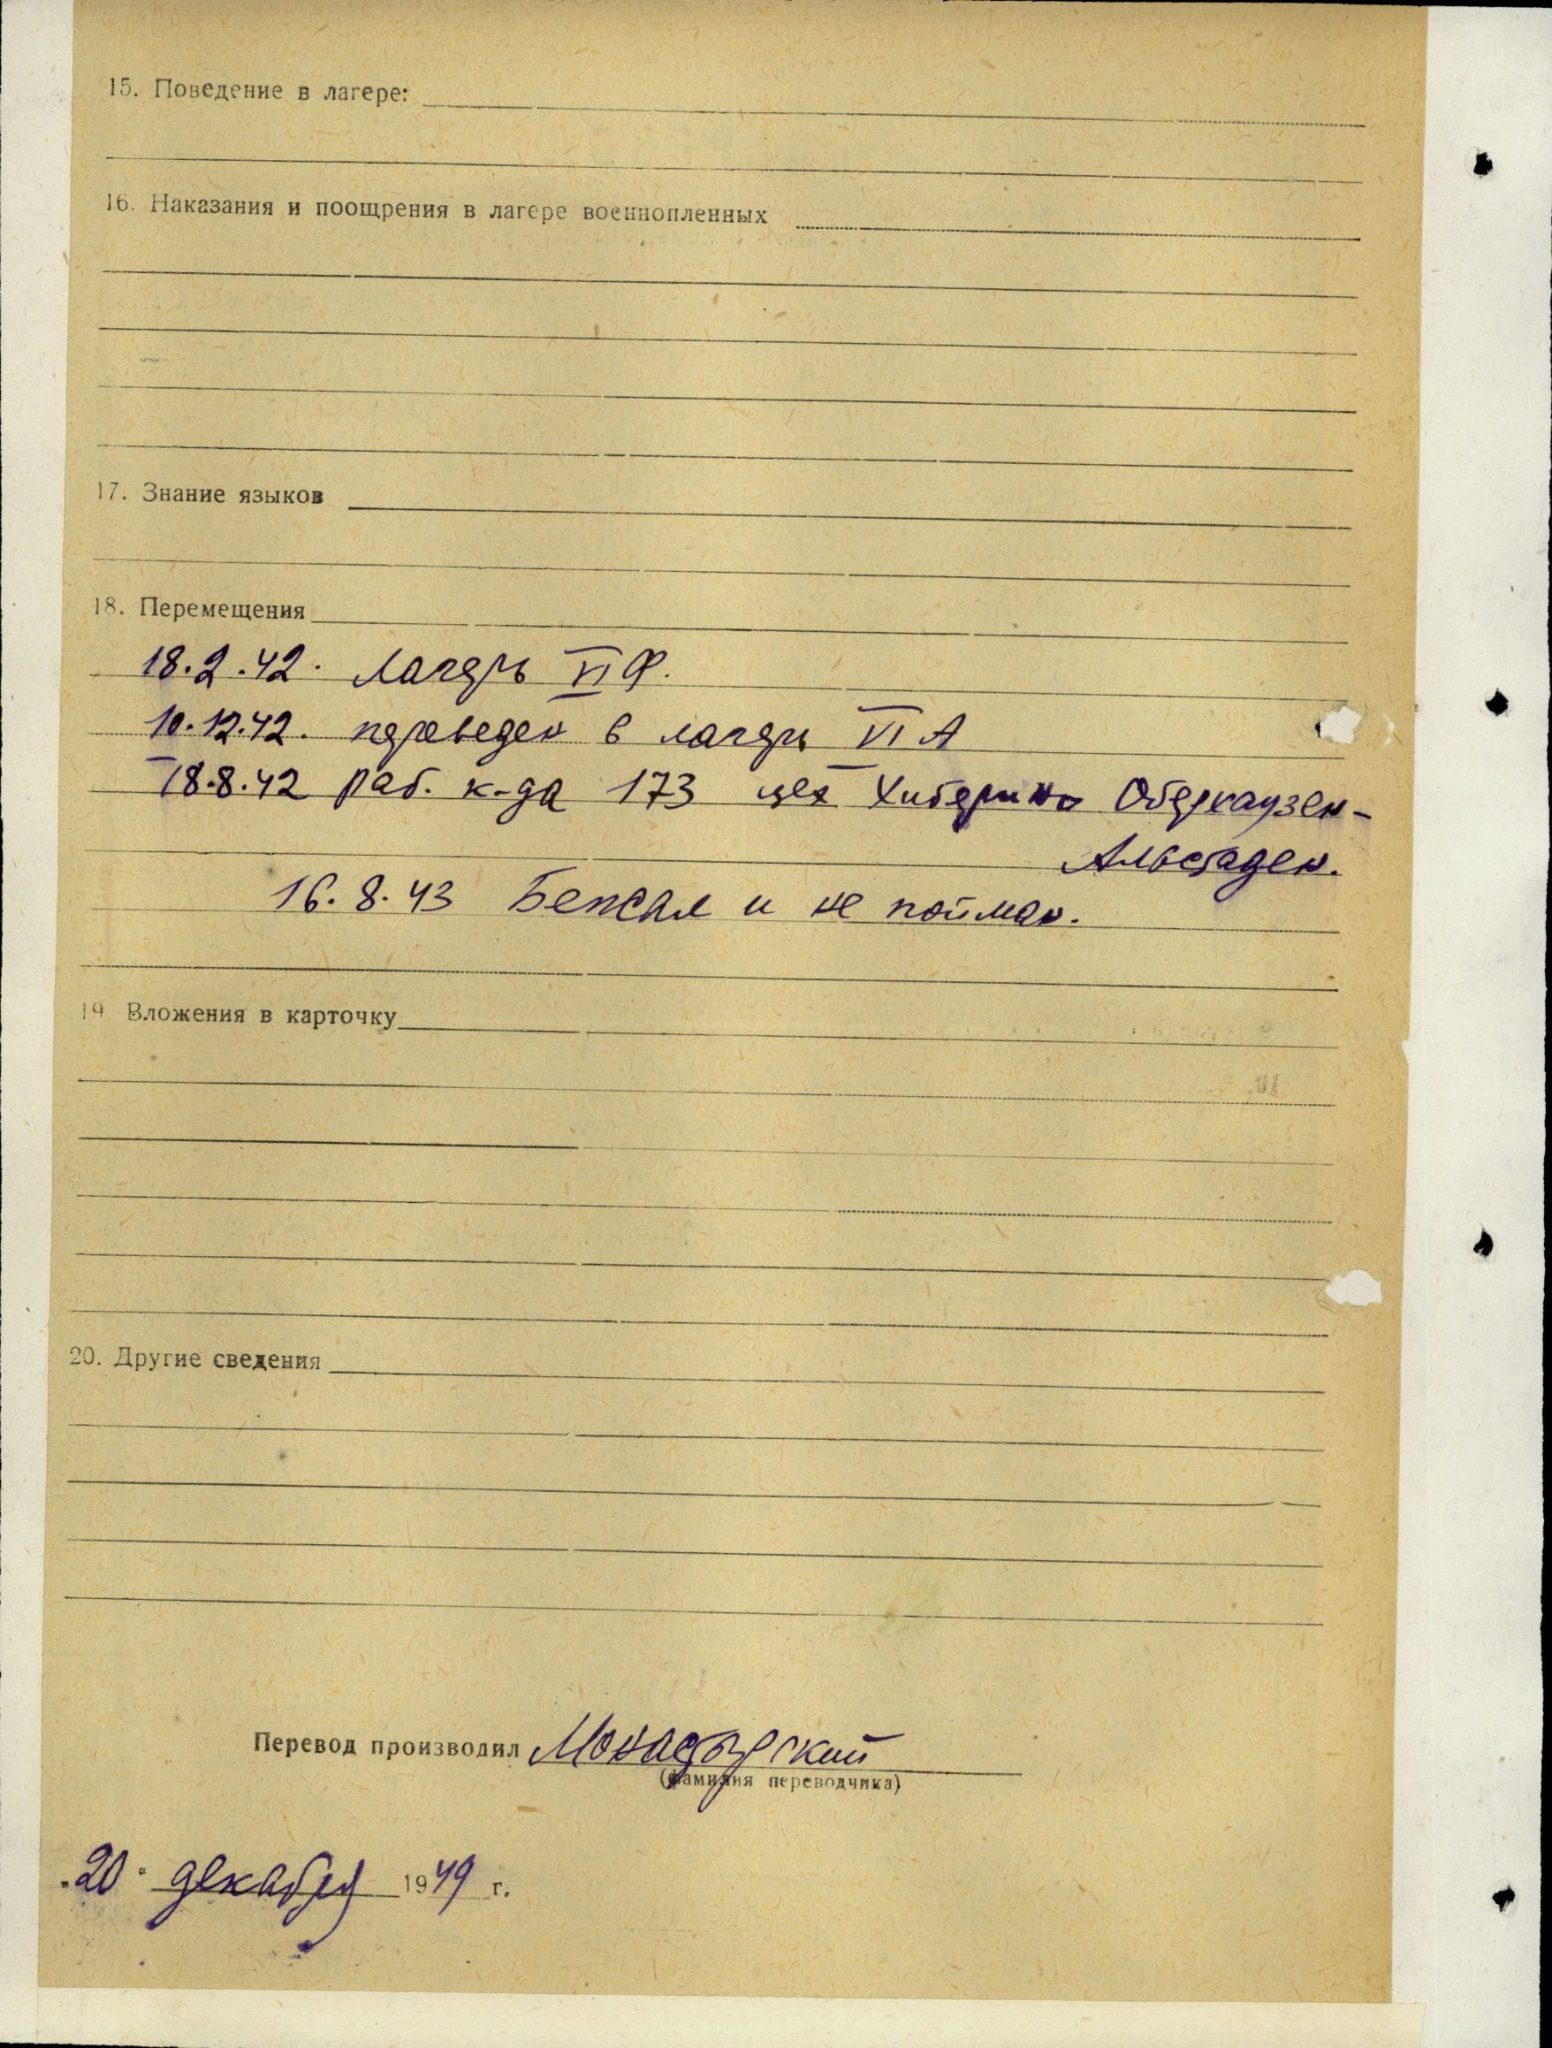 15. Поведение в лагере:
16. Наказания и поощрения в лагере военнопленных
17. Знание языков
18. Перемещения
18.2.42. Лагерь VI Ф.
10.12.42. переведен в лагерь VI А
18.8.42 Раб. к-да 173 цех Оберхаузен-
Альстаден.
16.8.43 Бежал и не пойман.
19. Вложения в карточку
20. Другие сведения
Перевод производил Монастырский
(фамилия переводчика)
"20" декабря 1949 г.